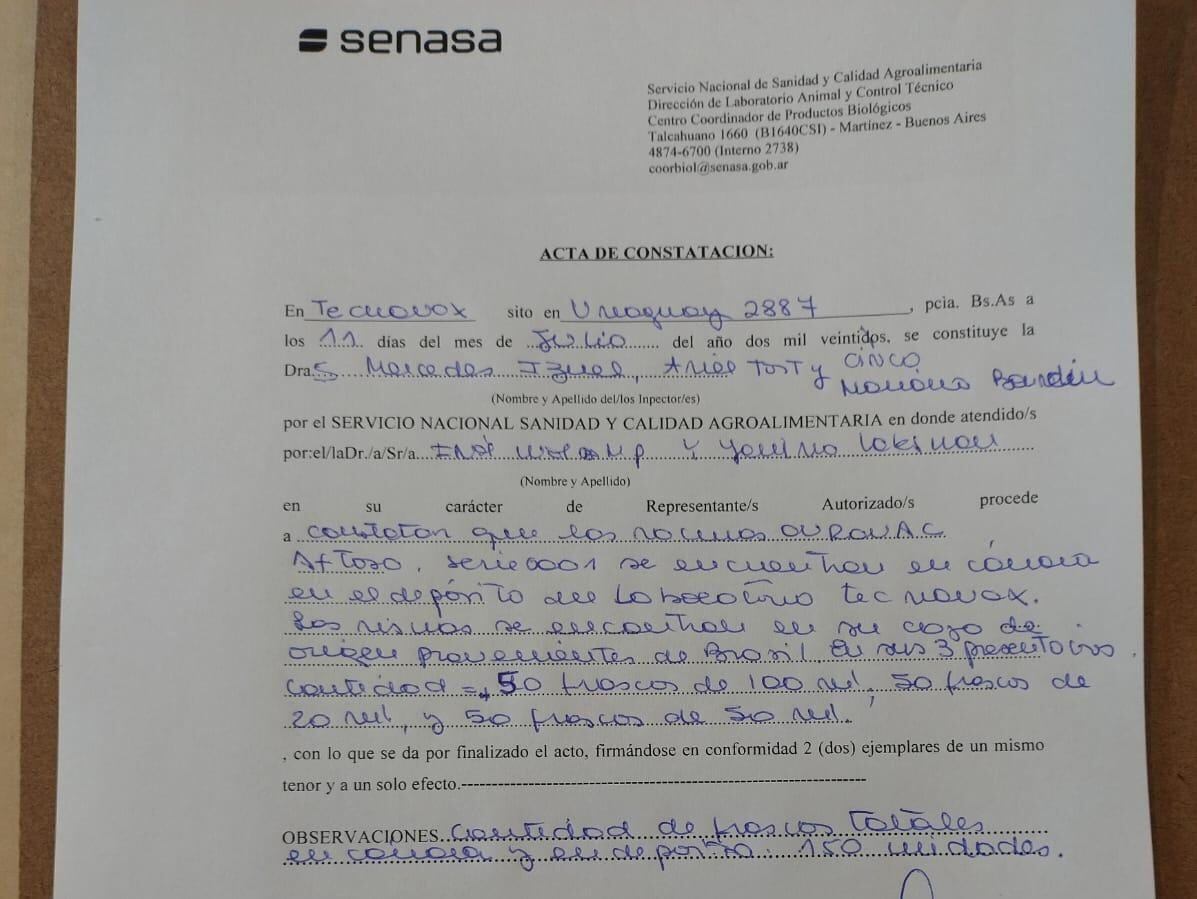 senasa
Servicio Nacional de Sanidad y Calidad Agroalimentaria
Dirección de Laboratorio Animal y Control Técnico
Centro Coordinador de Productos Biológicos
Talcahuano 1660 (B1640CSI) - Martinez - Buenos Aires
4874-6700 (Interno 2738)
coorbiol@senasa.gob.ar
ACTA DE CONSTATACION:
En Tecnovax sito en Uruguay 2887, pcia. Bs.As a
los 11 días del mes de Julio del año dos mil veintidos, se constituye la
cinco
Dras Mercedes Izuel, Ariel Tosti y Mariano
(Nombre y Apellido del/los Inspector/es)
por el SERVICIO NACIONAL SANIDAD Y CALIDAD AGROALIMENTARIA en donde atendido/s
por:el/laDr./a/Sr/a Y
(Nombre y Apellido)
en su carácter de Representante/s Autorizado/s procede
a constatar que las vacunas OUROVAC
Aftosa, serie 0001 se encuentran en cámara
en el depósito del Laboratorio Tecnovax.
Las mismas se encontran en su caja de
origen provenientes de Brasil. En sus 3
Cantidad = 50 frascos de 100 ml, 50 frascos de
20 ml, y 50 frascos de 50 ml.
, con lo que se da por finalizado el acto, firmándose en conformidad 2 (dos) ejemplares de un mismo
tenor y a un solo efecto.
OBSERVACIONES Cantidad de frascos totales
en cámara y en deposito: 150 unidades.